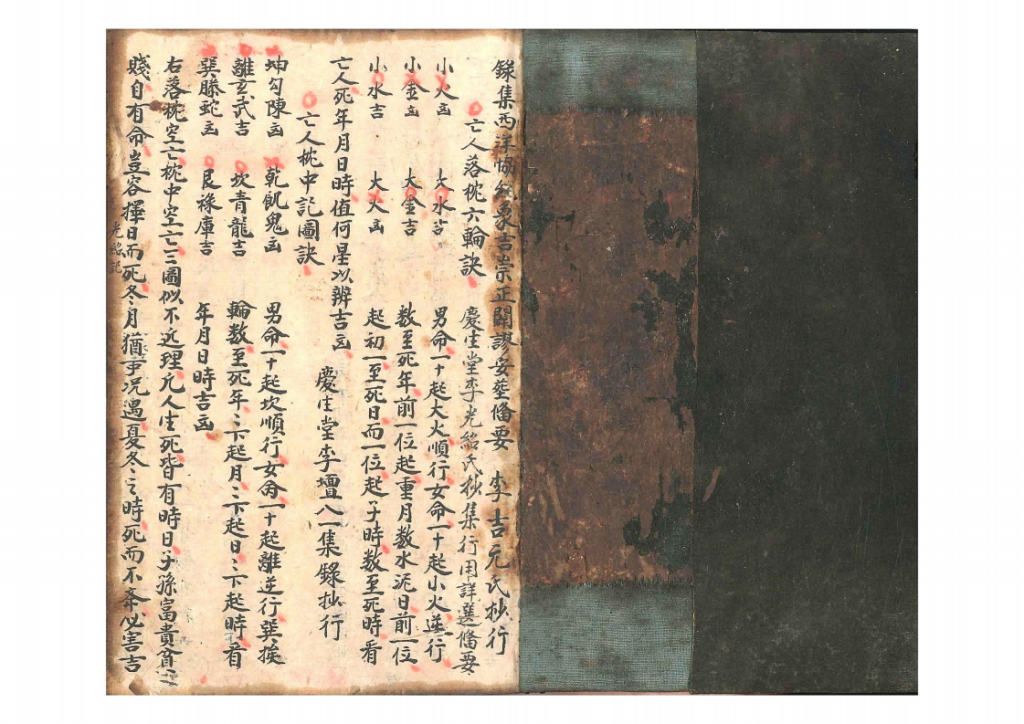 錄集西洋協紀象吉崇正闢謬安塟俻要　李吉元氏抄行
亡人落枕六輪訣　慶生堂李光紹氏抄集行用詳選俻要
小火凶　大水吉　男命一十起大火順行女命一十起小火逆行
小金凶　大金吉　数至死年前一位起重月数水泥日前一位
小水吉　大火凶　起初一至死日而一位起子時数至死時看
亡人死年月日時值何星以辨吉凶　慶生堂李壇八一集錄抄行
亡人枕中記圖訣
坤勾陳凶　乾飢鬼凶　男命一十起坎順行女命一十起離逆行巽挨
離玄武吉　坎青龍吉　輪数至死年〻下起月〻下起日〻下起時看
巽螣蛇凶　艮祿庫吉　年月日時吉凶
右落枕空亡枕中空亡二圖似不近理凢人生死皆有時日子孫富貴貧〻
賤自有命豈容擇日而死冬月猶事况遇夏冬之時死而不斎必害吉
光紹記